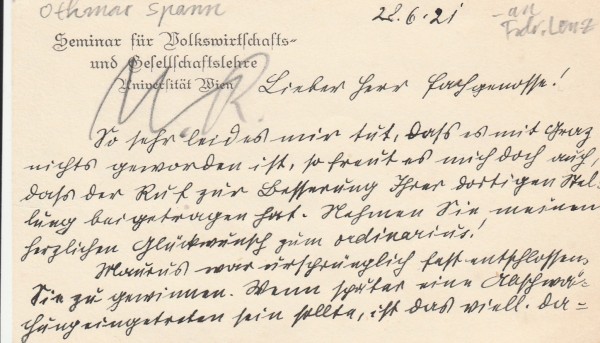 Othmar Spann
28.6.21
-an
Frdr. Lenz
Seminar für Volkswirtschafts-
und Gesellschaftslehre
Universität Wien
Lieber Herr Fachgenosse!
So sehr leid es mir tut, dass es mit Graz
nichts geworden ist, so freut es mich doch auch,
dass der Ruf zur Besserung Ihrer dortigen Stel-
lung beigetragen hat. Nehmen Sie meinen
herzlichen Glückwunsch zum ordinarius!
Maurus war ursprünglich fest entschlossen,
Sie zu gewinnen. Wenn später eine Abschwä-
chung eingetreten sein sollte, ist das viell. da-